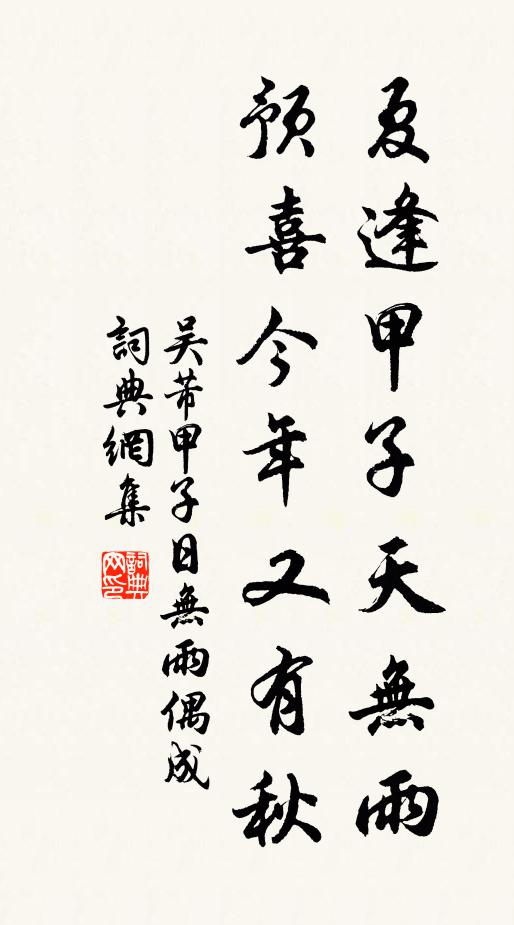 夏逢甲子天無雨
預喜今年又有秋
吴芾甲子日無雨偶成
詞典網集
詞典網印